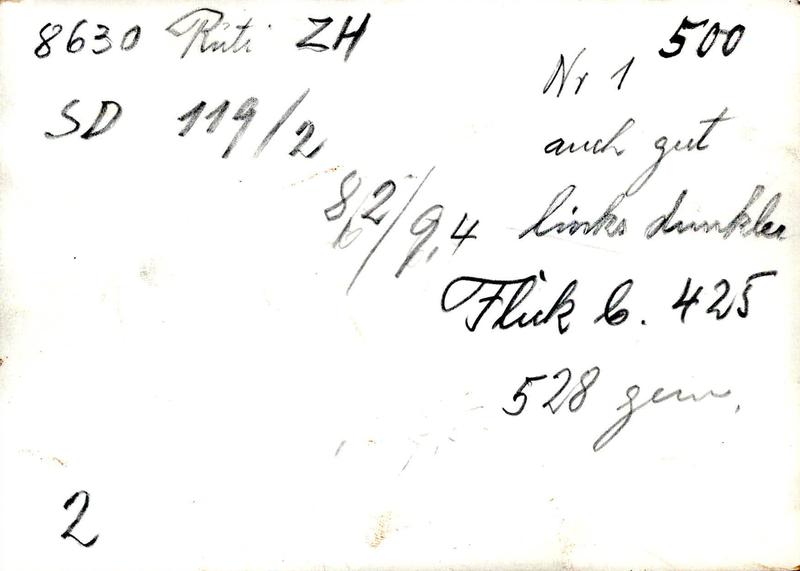 8630 Rüti ZH 500
Nr 1
SD 119/2
auch gut
8,2/9,4 links dunkler
Flick b. 425
528 gem.
2